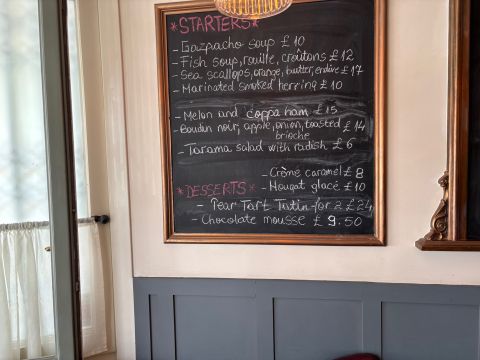 *STARTERS*
- Gazpacho soup £10
- Fish soup, rouille, croûtons £12
- Sea scallops, orange, butter, endive £17
- Marinated smoked herring £10
- Melon and coppa ham £15
- Boudin noir, apple, onion, toasted £14
brioche
- Tarama salad with radish, £6
- Crème caramel £8
*DESSERTS* - Nougat glacé £10
- Pear Tart Tatin for 2 £24
- Chocolate mousse £9.50